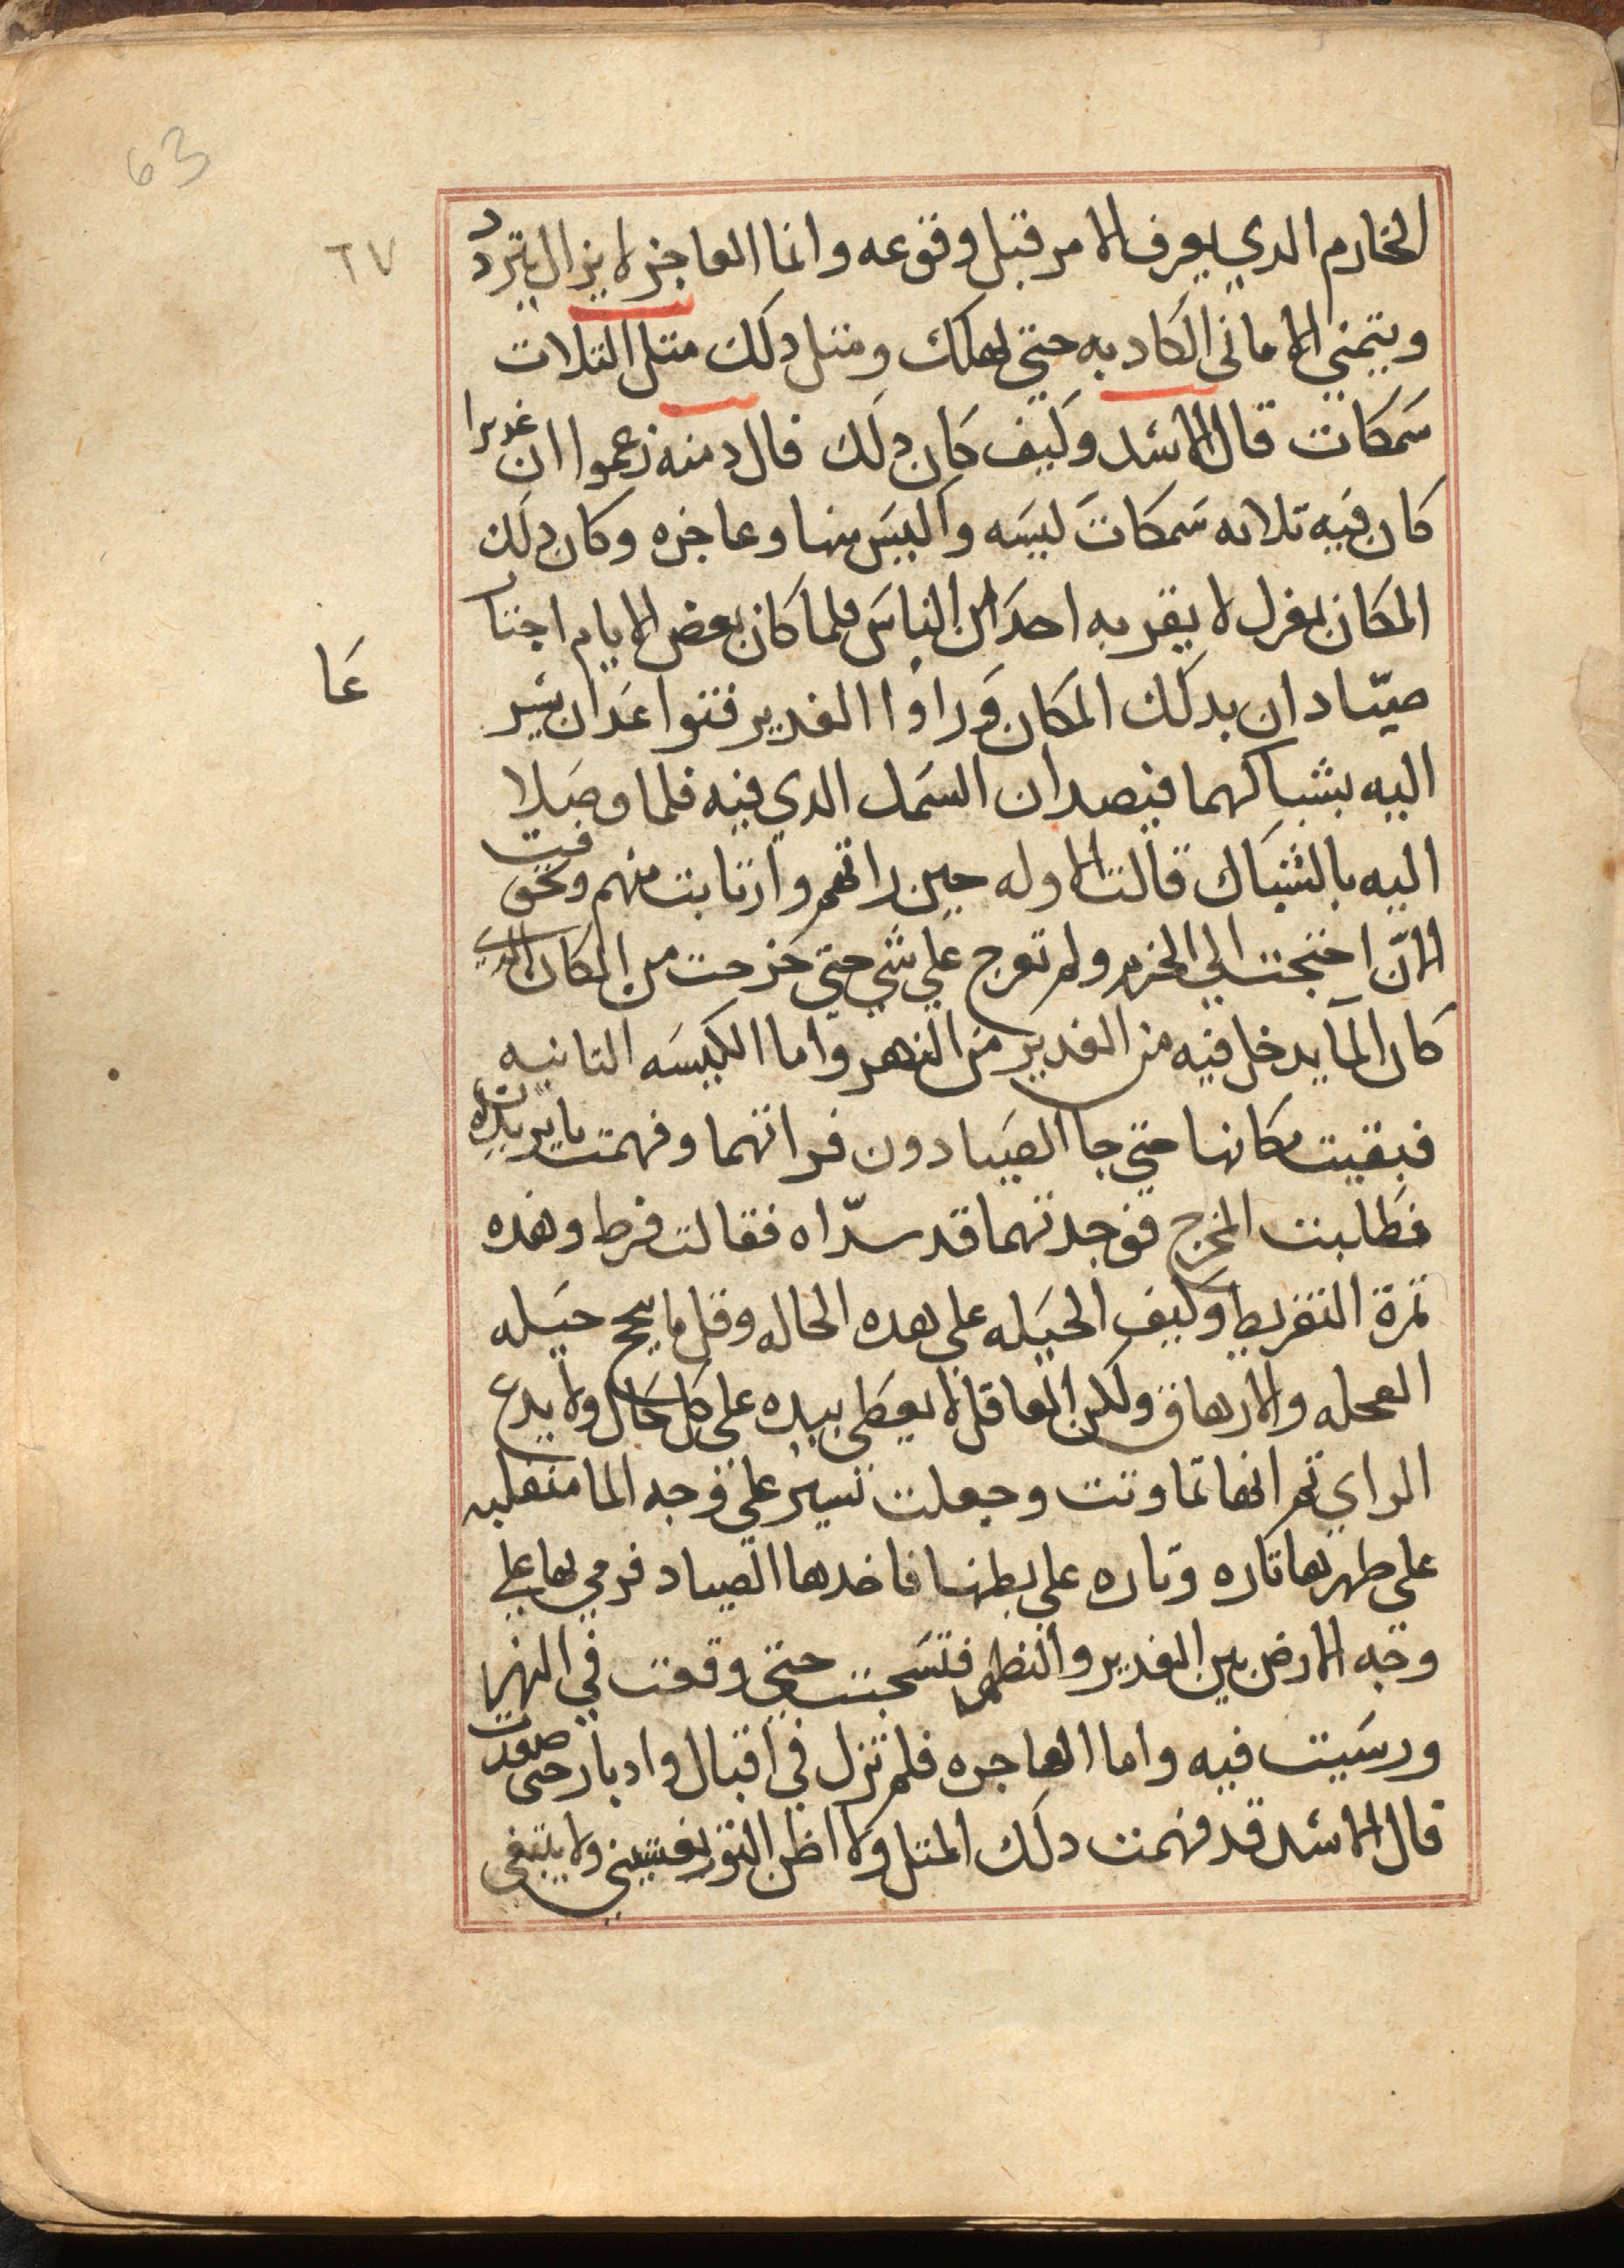 63
٦٧
الحازم الدي يعرف الامر قبل وقوعه وانما العاجز لا يزال يتردد
ويتمني الاماني الكادبه حتي يهلك ومتل دلك متل التلات
سمكات قال الاسد وكيف كان دلك قال دمنه زعموا ان غديرا
كان فيه تلاته سمكات كيسه واكيس منها وعاجزه وكان دلك
المكان بمعزل لا يقربه احدا من الناس فلما كان بعض الايام اجتا
عا
صيّادان بدلك المكان وراوا الغدير فتوا عدان يسير
اليه بشباكهما فيصدان السمك الدي فيه فلما وصلا
اليه بالشباك قالت الاوله حين راتهم وارتابت منهم وتخوفت
الان احتجت الي الحزم ولم تعرج علي شي حتي خرجت من المكان الدي
كان المآ يدخل فيه من الغدير من النهر واما الكيسه التانيه
فبقيت مكانها حتي جا الصيادون فراتهما وفهمت ما يريدان
فطلبت المخرج فوجدتهما قد سدّاه فقالت فرط وهده
تمرة التفريط وكيف الحيله علي هده الحاله وقل ما ينجح حيله
العجله والارهاق ولكن العاقل لا يعطي بيده علي كل حال ولا يدع
الراي تم انها تماوتت وجعلت تسير علي وجه الما منقلبه
علي ظهرها تاره وتاره علي بطنها فاخدها الصياد فرمي بها علي
وجه الارض بين الغدير والنهر فتسحبت حتي وقعت في النهر
ورسيت فيه واما العاجزه فلم تزل في اقبال وادبار حتي صيدت
قال الاسد قد فهمت دلك المتل ولا اظن التور يغشني ولا يبتغي